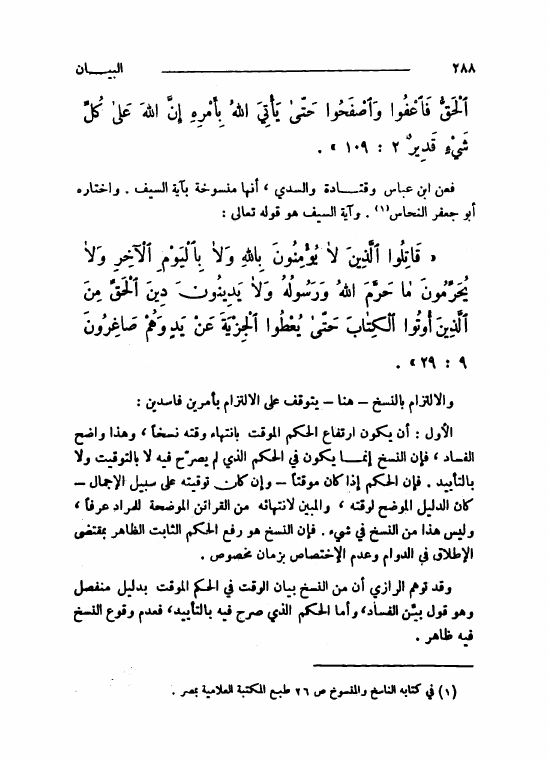 ٢٨٨ البيـــان
ٱلْحَقُّ فَٱعْفُوا وَٱصْفَحُوا حَتّىٰ يَأْتِيَ اللهُ بِأَمْرِهِ إِنَّ اللهَ عَلىٰ كُلِّ
شَيْءٍ قَدِيرٌ ٢ : ١٠٩ » .
فعن ابن عباس وقتـــادة والسدي ، أنها منسوخة بآية السيف . واختاره
أبو جعفر النحاس (١) . وآية السيف هو قوله تعالى :
« قَاتِلُوا ٱلَّذِينَ لاٰ يُؤْمِنُونَ بِاللهِ وَلاٰ بِٱلْيَوْمِ ٱلْآخِرِ وَلاٰ
يُحَرِّمُونَ مٰا حَرَّمَ اللهُ وَرَسُولُهُ وَلاٰ يَدِينُونَ دِينَ ٱلْحَقِّ مِنَ
ٱلَّذِينَ أُوتُوا ٱلْكِتٰابَ حَتّىٰ يُعْطُوا ٱلْجِزْيَةَ عَنْ يَدٍ وَهُمْ صَاغِرُونَ
٩ : ٢٩ » .
والالتزام بالنسخ – هنا – يتوقف على الالتزام بأمرين فاسدين :
الأول : أن يكون ارتفاع الحكم الموقت بانتهاء وقته نسخاً ، وهذا واضح
الفساد ، فإن النسخ إنمـا يكون في الحكم الذي لم يصرّح فيه لا بالتوقيت ولا
بالتأبيد . فإن الحكم إذا كان موقتاً – وإن كان توقيته على سبيل الإجمال –
كان الدليل الموضح لوقته ، والمبين لانتهائه من القرائن الموضحة للمراد عرفاً ،
وليس هذا من النسخ في شيء . فإن النسخ هو رفع الحكم الثابت الظاهر بمقتضى
الإطلاق في الدوام وعدم الإختصاص بزمان مخصوص .
وقد توهم الرازي أن من النسخ بيان الوقت في الحكم الموقت بدليل منفصل
وهو قول بيّن الفساد، وأما الحكم الذي صرح فيه بالتأبيد، فعدم وقوع النسخ
فيه ظاهر .
(١) في كتابه الناسخ والمنسوخ ص ٢٦ طبع المكتبة العلامية بمصر .